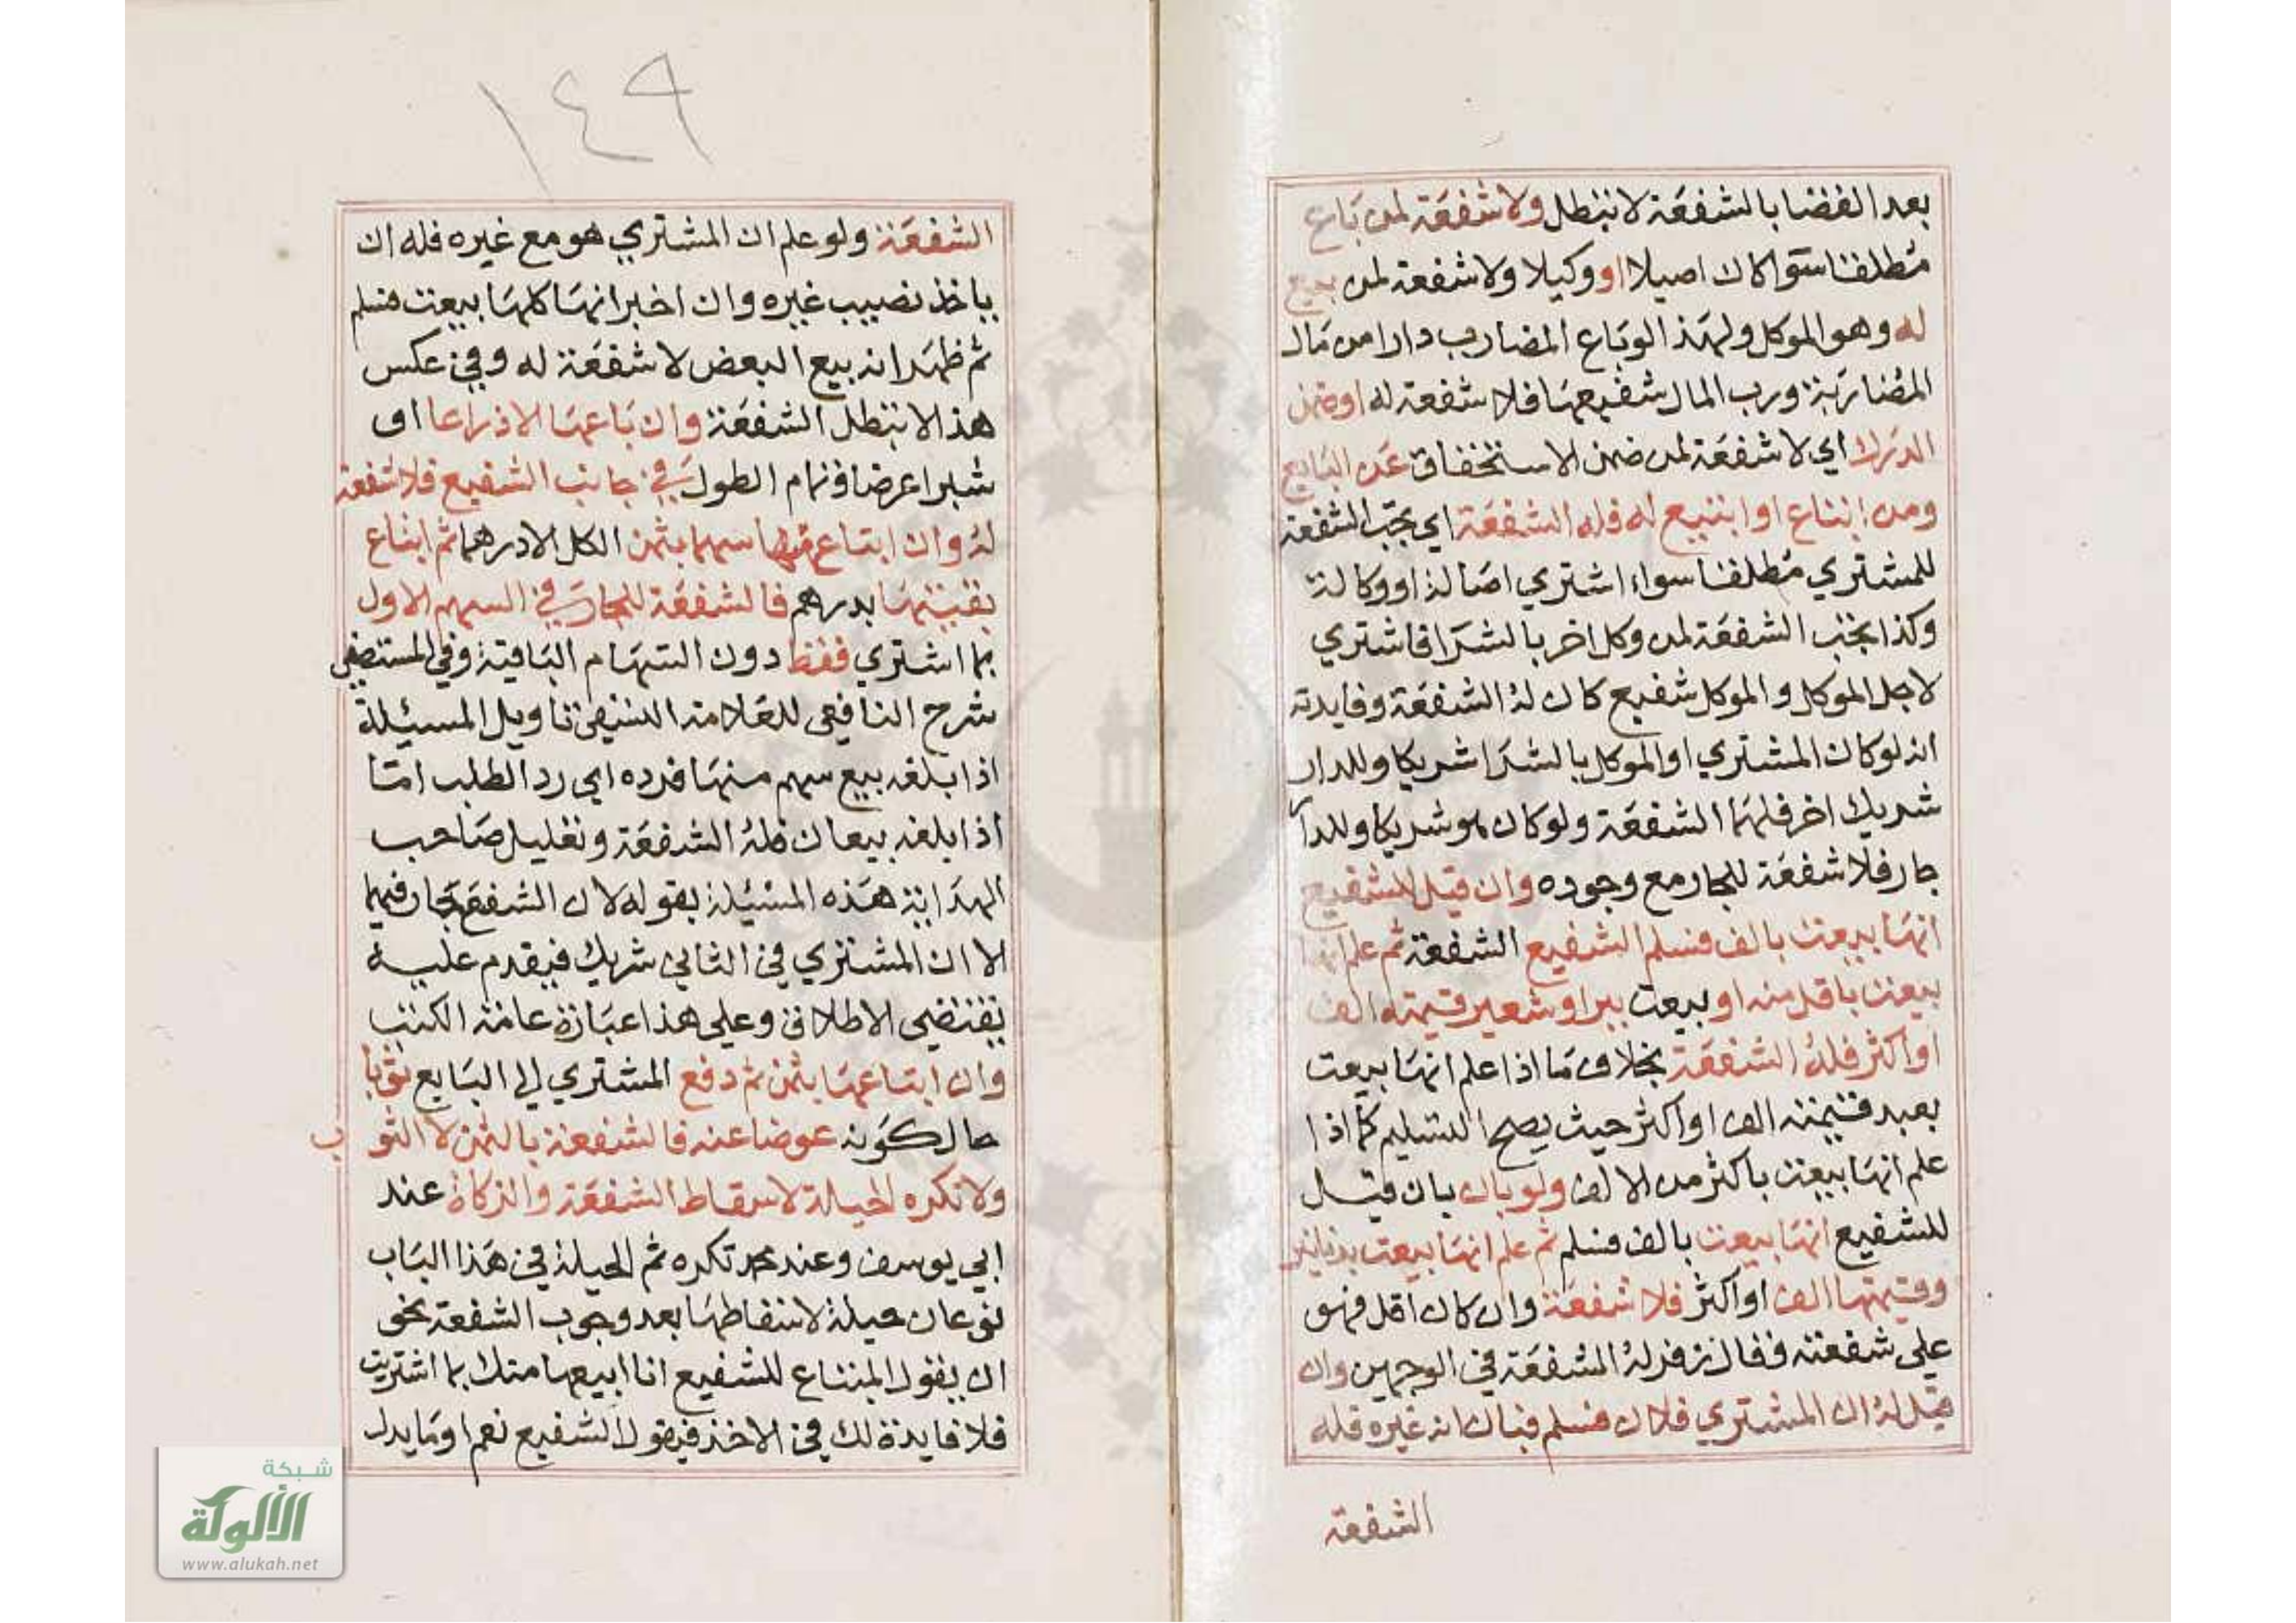 بعد القضا بالشفعة لا تبطل ولا شفعة لمن باع
مطلقا سوا كان اصيلا او وكيلا ولا شفعة لمن بيع
له وهو الموكل ولهذا لو باع المضارب دارا من مال
المضاربة ورب المال شفيعها فلا شفعة له او ضمن
الدرك اي لا شفعة لمن ضمن الاستحقاق عن البايع
ومن ابتاع او ابتيع له فله الشفعة اي تجب الشفعة
للمشتري مطلقا سواء اشتري اصالة او وكالة
وكذا تجب الشفعة لمن وكل اخر بالشرا فاشتري
لاجل الموكل والموكل شفيع كان له الشفعة وفايدته
انه لو كان المشتري او الموكل بالشرا شريكا وللدار
شريك اخر فلهما الشفعة ولو كان هو شريكا وللدار
جار فلا شفعة للجار مع وجوده وان قيل للشفيع
انها بيعت بالف فسلم الشفيع الشفعة ثم علم انها
بيعت باقل منه او بيعت ببر او شعير قيمته الف
او اكثر فله الشفعة بخلاف ما اذا علم انها بيعت
بعبد قيمته الف او اكثر حيث يصح التسليم كما اذا
علم انها بيعت باكثر من الالف ولو بان بان قيل
للشفيع انها بيعت بالف فسلم ثم علم انها بيعت بدنانير
وقيمتها الف او اكثر فلا شفعة وان كان اقل فهو
علي شفعته فقال زفر له الشفعة في الوجهين وان
قيل له ان المشتري فلان فسلم فبان انه غيره فله
الشفعة
١٤٩
الشفعة ولو علم ان المشتري هو مع غيره فله ان
ياخذ نصيب غيره وان اخبر انها كلها بيعت فسلم
ثم ظهر انه بيع البعض لا شفعة له وفي عكس
هذا لا تبطل الشفعة وان باعها الا ذراعا او
شبرا عرضا في تمام الطول في جانب الشفيع فلا شفعة
له وان ابتاع منها سهما بثمن الكل الا درهما ثم ابتاع
بقيتها بدرهم فالشفعة للجار في السهم الاول
بما اشتري فقط دون السهام الباقية وفي المستصفي
شرح النافعي للعلامة النسفي تاويل المسئيلة
اذا بلغه بيع سهم منها فرده اي رد الطلب امتا
اذا بلغه بيعان فله الشفعة وتعليل صاحب
الهداية هذه المسئيلة بقوله لان الشفيع جار فيهما
الا ان المشتري في الثاني شريك فيقدم عليه
يقتضي الاطلاق وعلي هذا عبارة عامة الكتب
وان ابتاعها بثمن ثم دفع المشتري الي البايع ثوبا
حال كونه عوضا عنه فالشفعة بالثمن لا الثوب
ولا تكره الحيلة لاسقاط الشفعة والزكاة عند
ابي يوسف وعند محمد تكره ثم الحيلة في هذا الباب
نوعان حيلة لاسقاطها بعد وجوب الشفعة نحو
ان يقول المبتاع للشفيع انا ابيعها منك بما اشتريت
فلا فايدة لك في الاخذ فيقول الشفيع نعم او ما يدل
شبكة
الألوكة
www.alukah.net